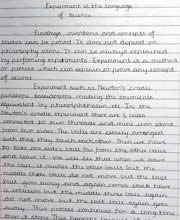 Experiment is the language
of science
Findings, inventions and concepts of
science can be proved. It does not depend on
philosophy alone. It can be always explained
by performing experiments. Experiment is a method
or process which can explain or prove any concept
of science.
Experiment such as Newton's cradle
making the chemicals
equivalent by phenolphthalein, etc. In the
Newton's cradle experiment there are 5 balls
connected to two threads and make iron stand
from two sides. The balls are closely arranged
such that they touch each other. Then we have
to take one side's ball far from the other balls
and leave it. We will see that when we leave
the ball, it pushes the other balls but the
middle three balls do not move but the last
ball goes away and again comes back have
a collision but the middle three balls again
do not move but the last ball again goes
away. This process continues for a long time
then it stops. This happens because